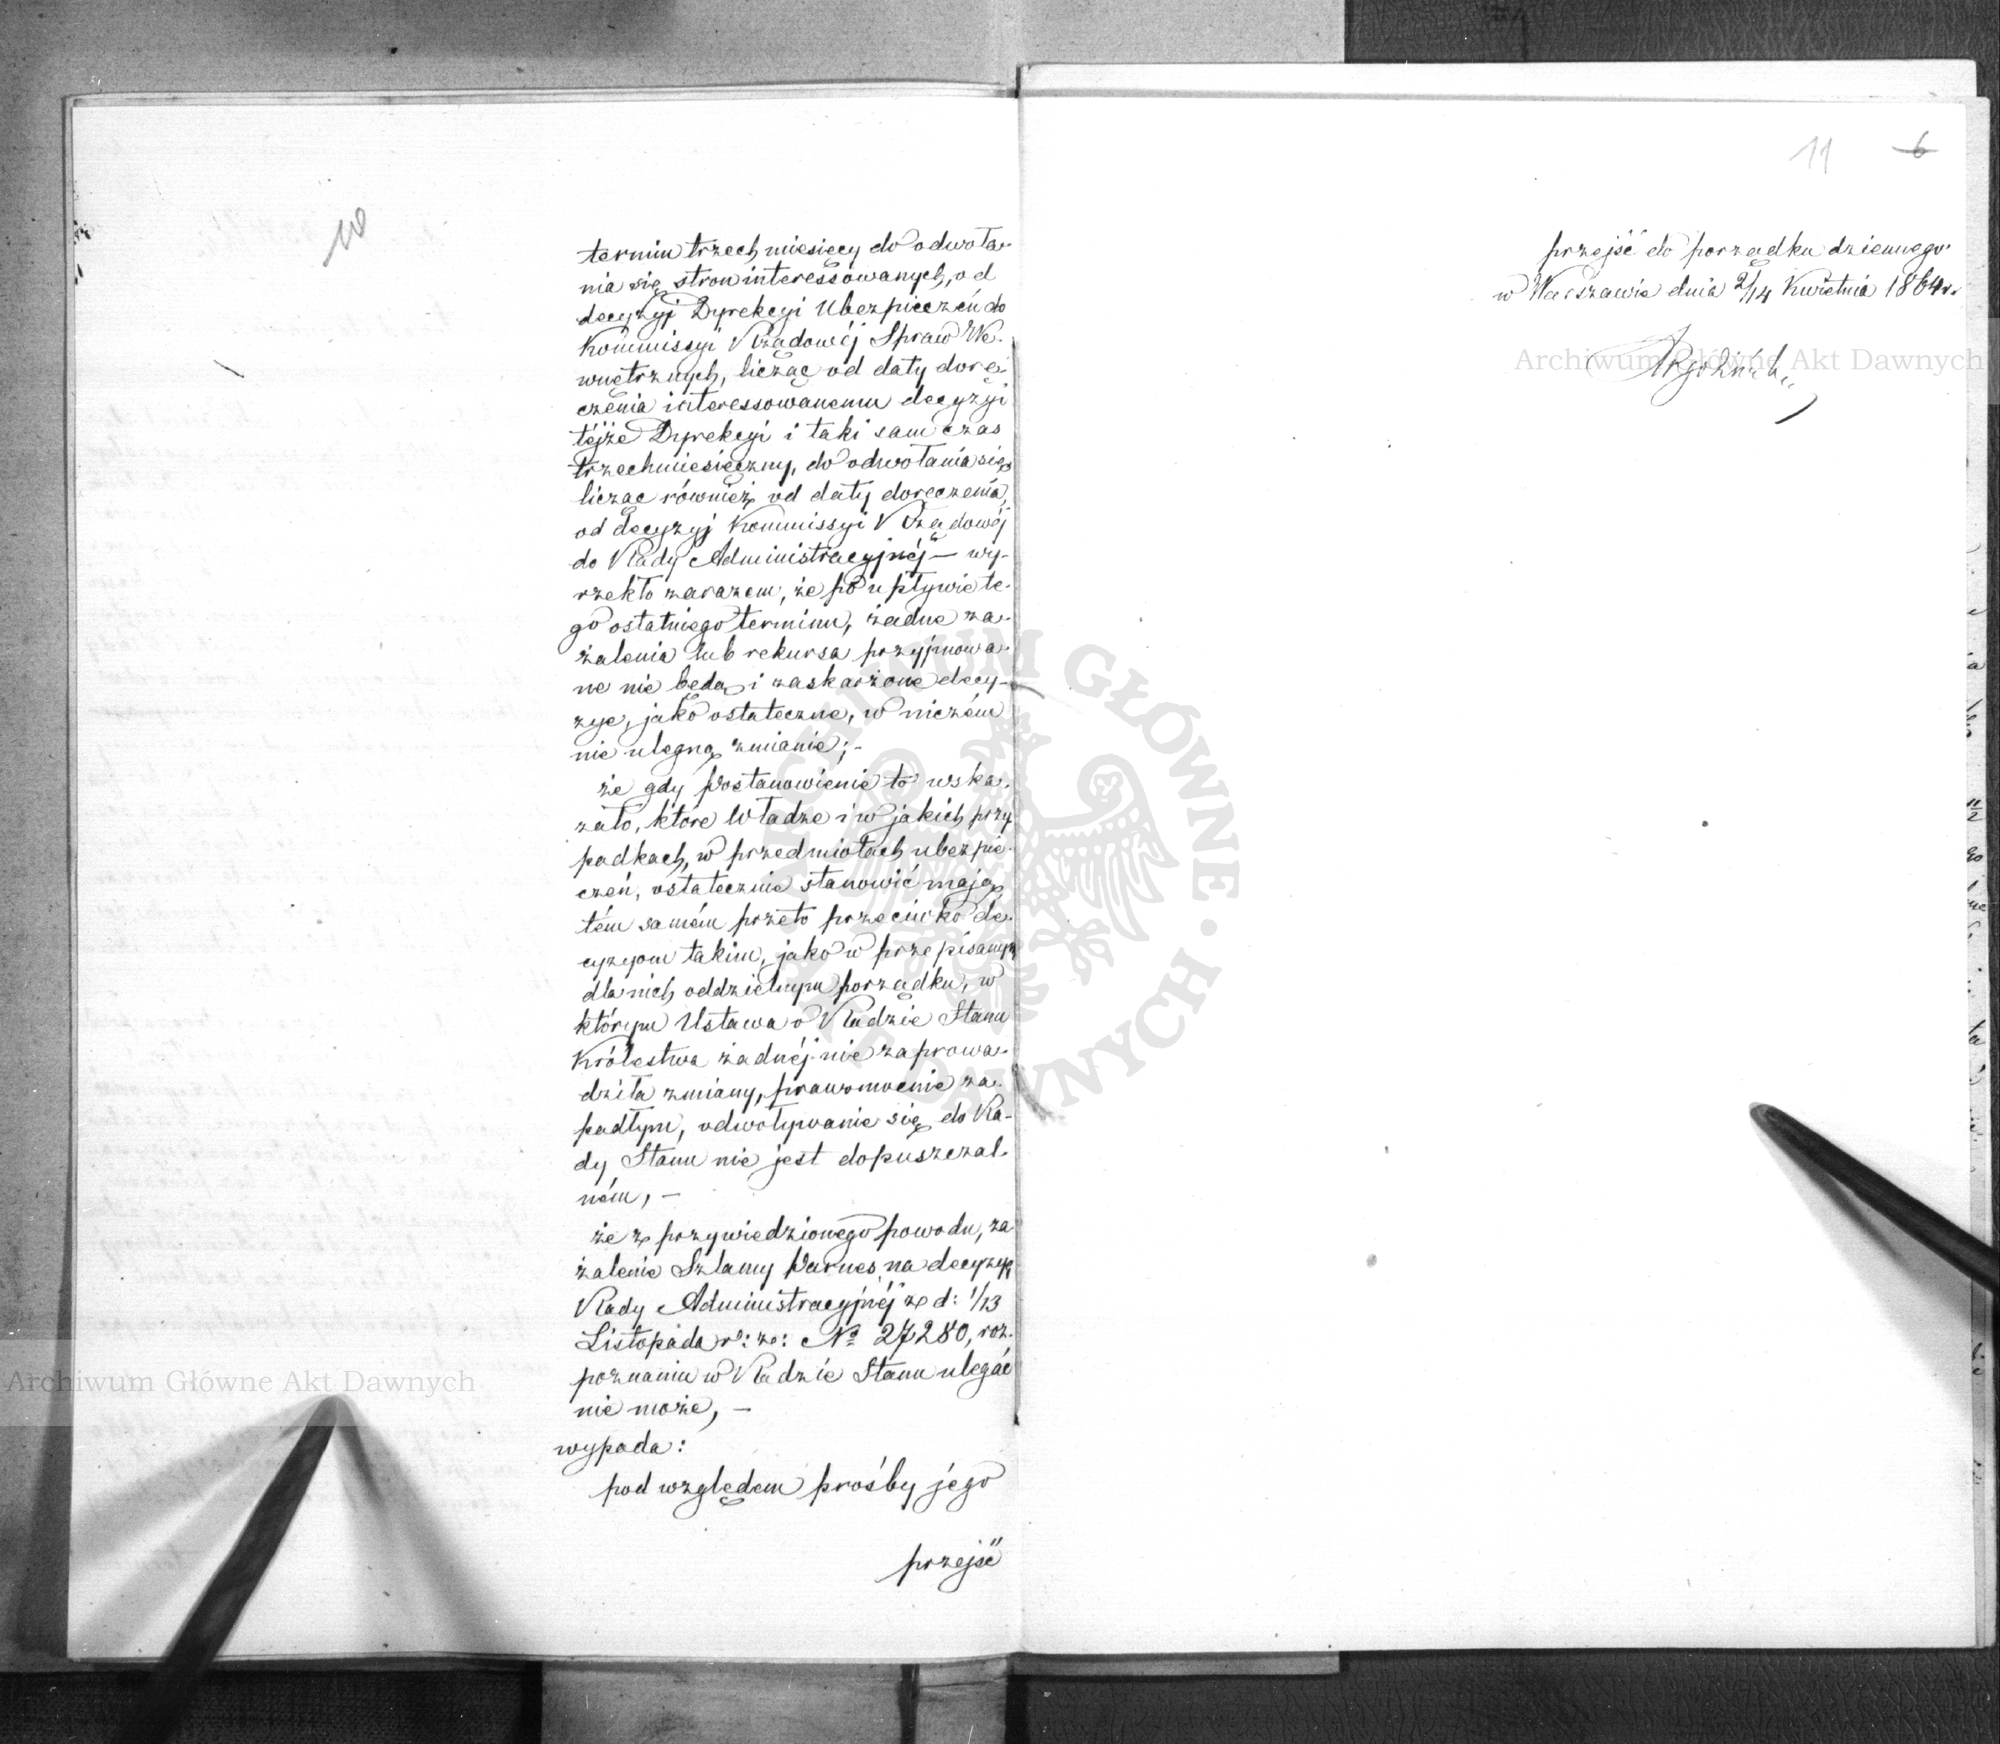 10
termin trzech miesięcy do odwoła-
nia się stron interessowanych, od
decyzyj Dyrekcyi Ubezpieczeń do
Kommissyi Rządowéj Spraw We-
wnętrznych, licząc od daty dorę-
czenia interessowanemu decyzyi
téjże Dyrekcyi i taki sam czas
trzechmiesięczny, do odwołania się,
licząc również od daty doręczenia,
od decyzyj Kommissyi Rządowéj
do Rady Administracyjnéj — wy-
rzekło zarazem, że po upływie te-
go ostatniego terminu, żadne za-
żalenia lub rekursa przyjmowa-
ne nie będą i zaskarżone decy-
zye, jako ostateczne, w niczém
nie ulegną zmianie; -
że gdy Postanowienie to wska-
zało, które Władze i w jakich przy
padkach, w przedmiotach ubezpie-
czeń, ostatecznie stanowić mają,
tém samém przeto przeciwko de-
cyzyom takim, jako w przepisanym
dla nich oddzielnym porządku, w
którym Ustawa o Radzie Stanu
Królestwa żadnéj nie zaprowa-
dziła zmiany, prawomocnie za-
padłym, odwoływanie się do Ra-
dy Stanu nie jest dopuszczal-
ném, —
że z przywiedzionego powodu, za
żalenie Szlamy Parnes na decyzyę
Rady Administracyjnéj z d: 1/13
Listopada r: z: № 27280, roz-
poznaniu w Radzie Stanu ulegać
nie może, —
wypada:
pod względem prośby jego
przejść
11 6
przejść do porządku dziennego
w Warszawie dnia 2/14 Kwietnia 1864 r.
Archiwum Główne Akt Dawnych
Archiwum Główne Akt Dawnych
ARCHIWUM GŁÓWNE AKT DAWNYCH